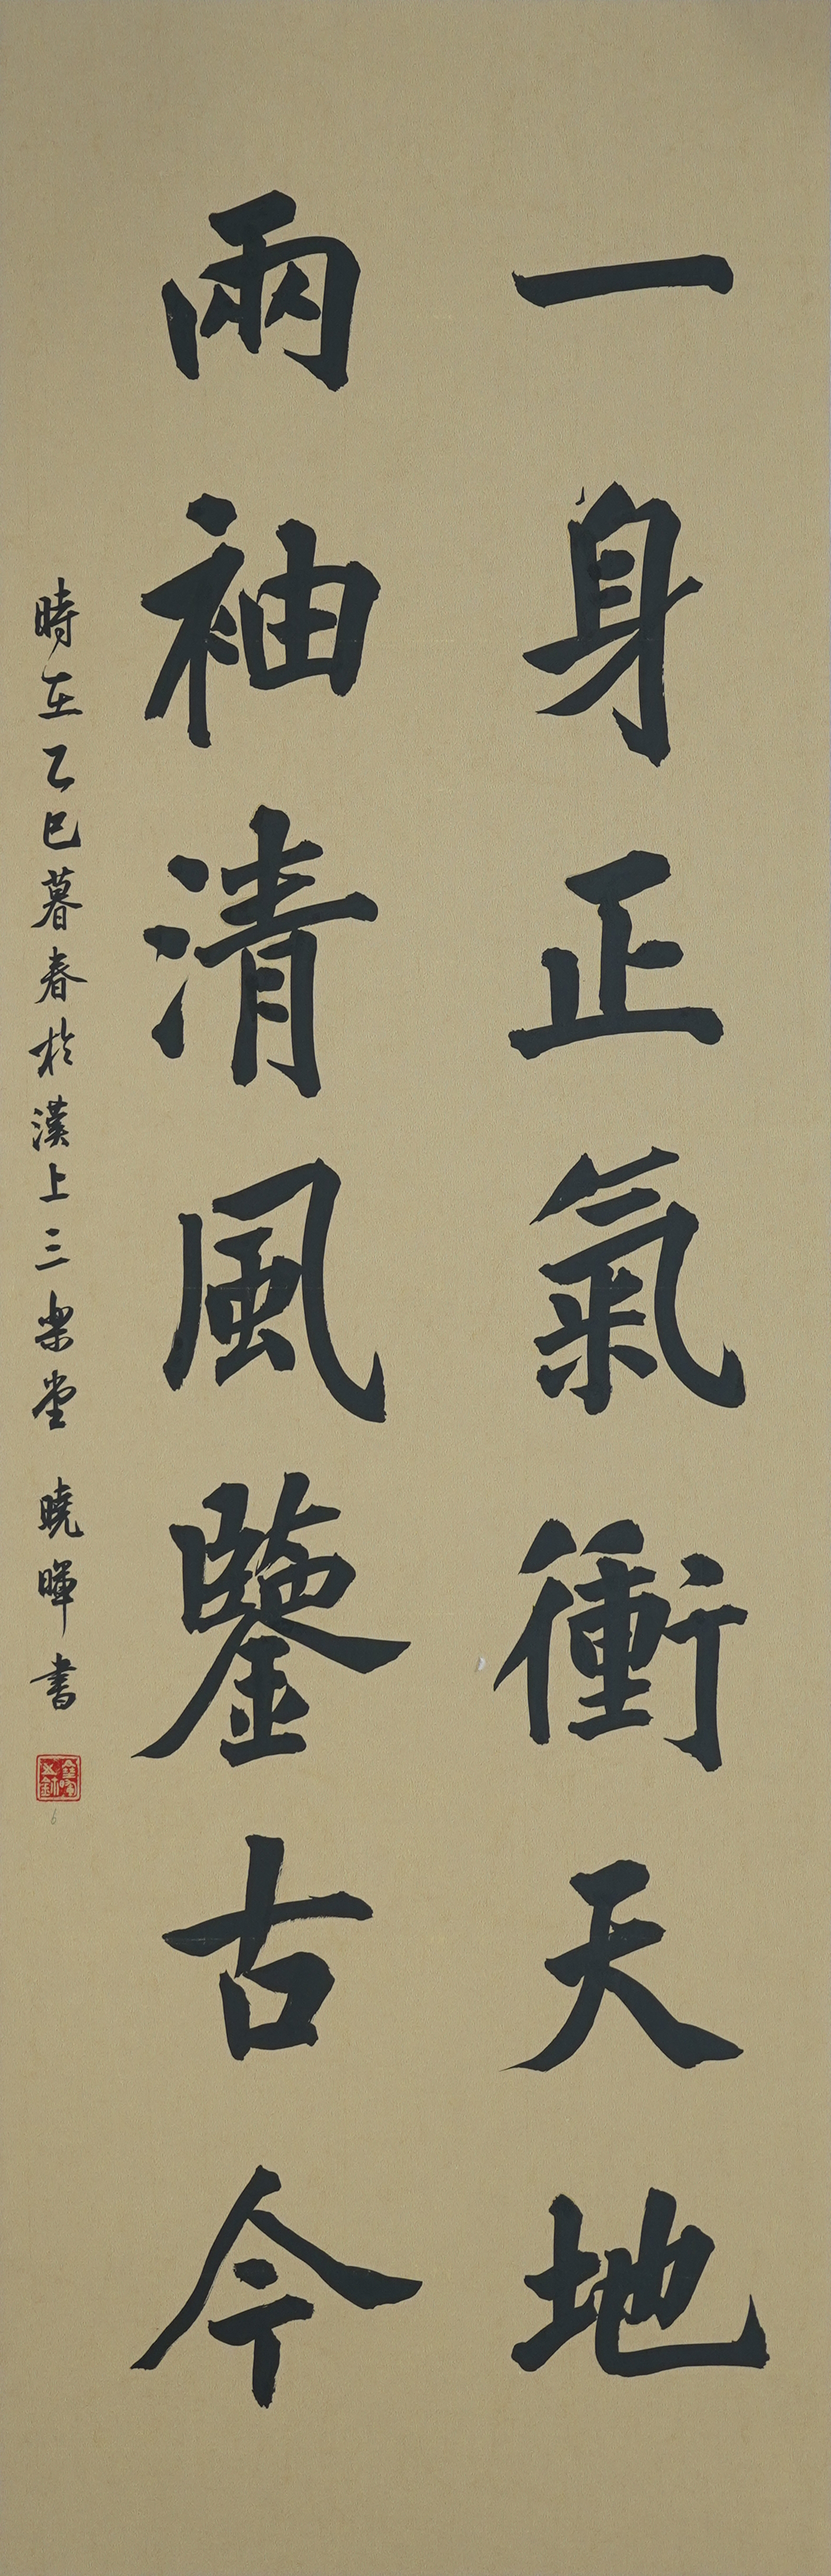 一身正氣衝天地
兩袖清風鑒古今
時在乙巳暮春於漢上三樂堂 曉暉書
6